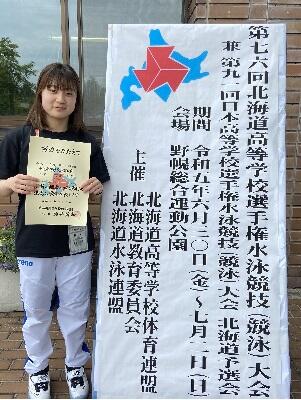 第七六回北海道高等学校選手権水泳競技(競泳)大会
兼 第九一回日本高等学校選手権水泳競技(競泳)大会 北海道予選会
期間 令和五年六月三〇日(金)~七月二日(日)
会場 野幌総合運動公園
主催 北海道高等学校体育連盟
北海道教育委員会
北海道水泳連盟
arena